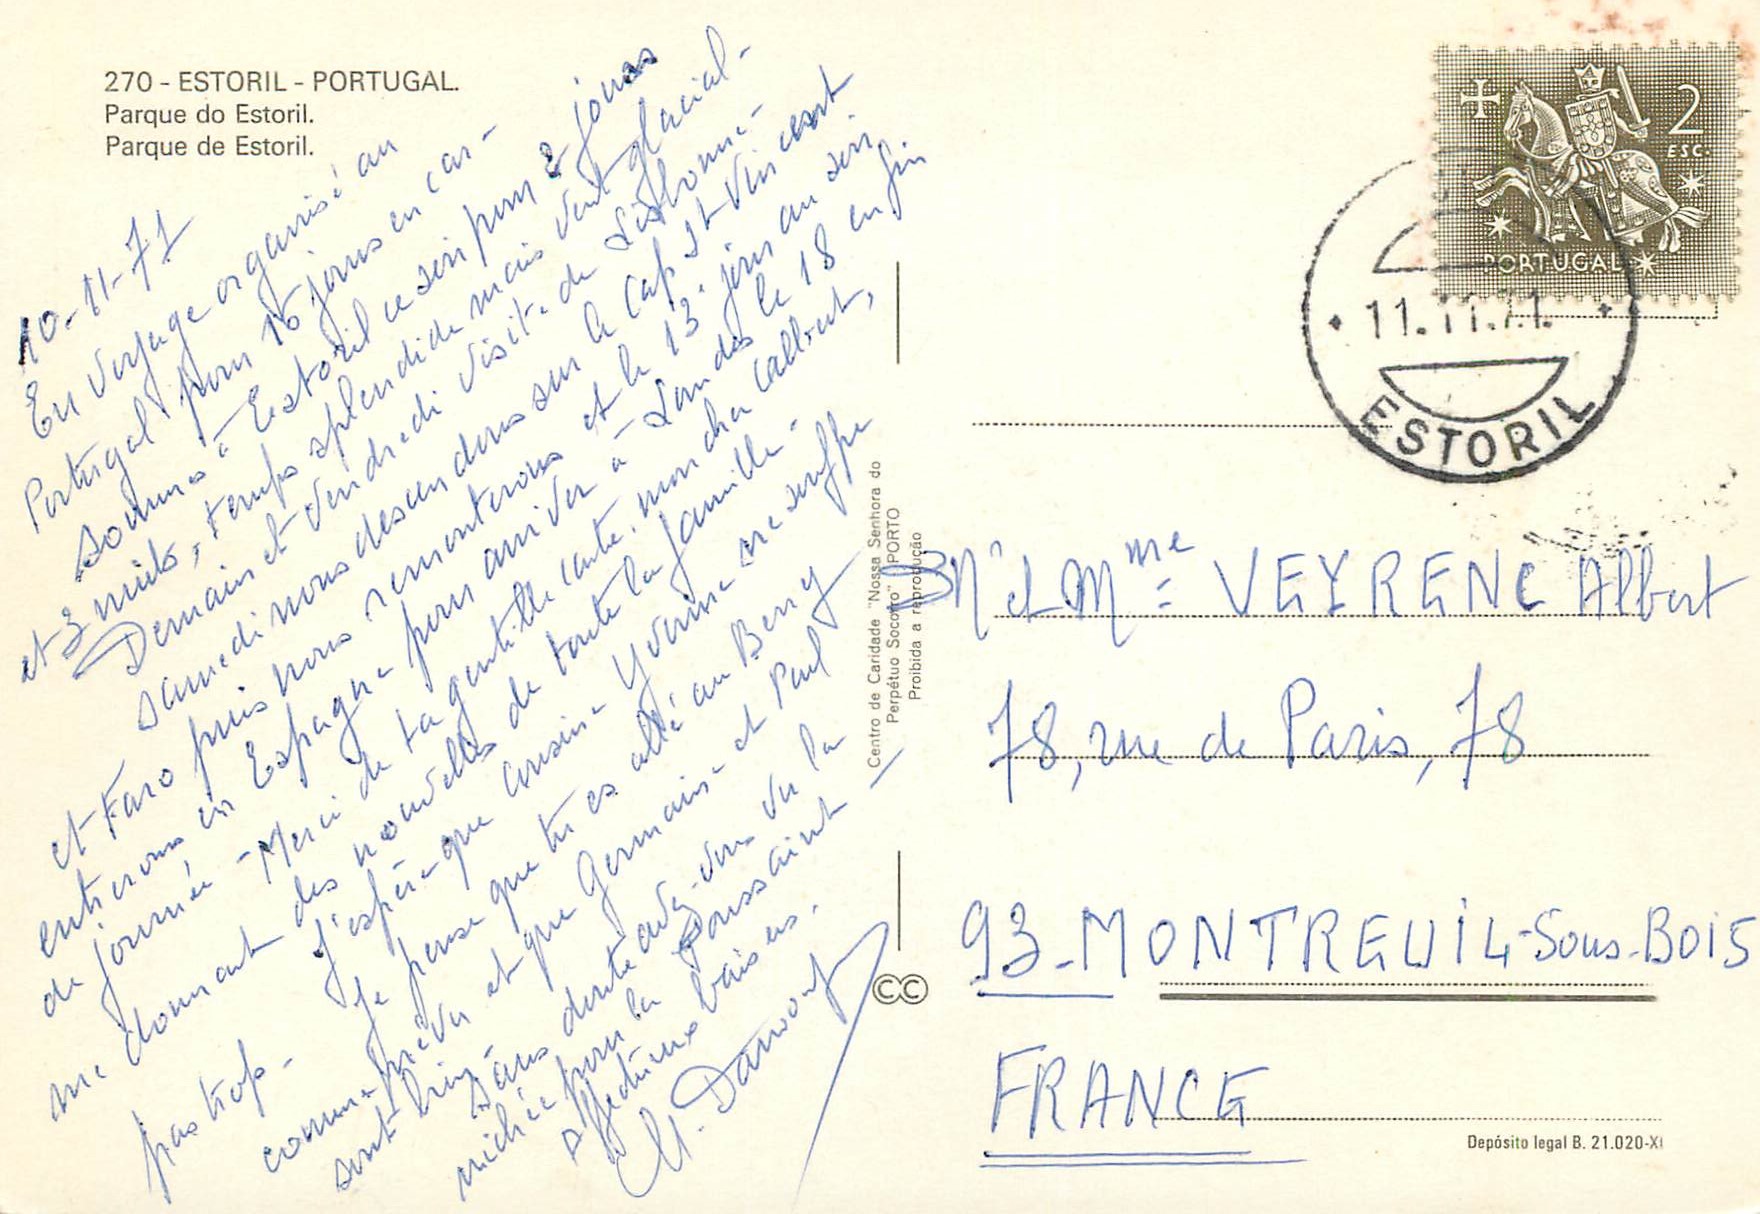 270 - ESTORIL - PORTUGAL.
Parque do Estoril.
Parque de Estoril.
10-11-71
En voyage organisé au
Portugal pour 16 jours en car -
sommes à Estoril ce soir pour 2 jours
et 3 nuits, temps splendide mais vent glacial -
Demain et Vendredi visite de Lisbonne -
samedi nous descendons sur le Cap St Vincent
et Faro puis nous remonterons et le 13e jour au soir
entrerons en Espagne pour arriver à Lourdes le 18 en fin
de journée - Merci de ta gentille carte, mon cher Calbert,
me donnant des nouvelles de toute la famille -
J'espère que cousine Yvonne ne souffre
pas trop -
Je pense que tu es allé au Berry
comme prévu et que Germaine et Paul
sont bien
Sans doute avez-vous vu la
nichée pour la Toussaint
Affectueux baisers.
PORTUGAL
2
ESC.
11.11.71.
ESTORIL
Centro de Caridade "Nossa Senhora do
Perpétuo Socorro" PORTO
Proibida a reprodução
Mr et Mme VEYRENC Albert
78, rue de Paris, 78
93 - MONTREUIL-Sous-BOIS
FRANCE
CC
Depósito legal B. 21.020-XI